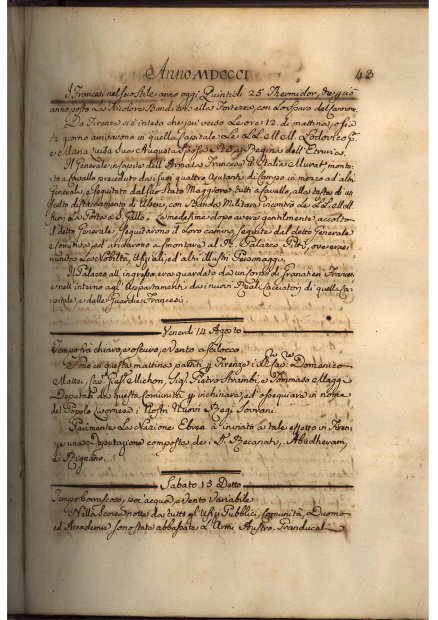 Anno MDCCCI 43
I Francesi nel suo stile anno oggi Quintidi 25 Thermidor,
anno posto la Tricolore Bandiera alla Fortezza, con lo sparo del Cannone.
Da Firenze si è inteso che jeri verso le ore 12. di mattina, o sia
12 giorno arrivarono in quella Capitale Le LL. MM. Lodovico P.
e Maria Luisa sua Augusta Sposa Re, e Regina dell'Etruria.
Il Generale in Capite dell'Armata Francese d'Italia Murat montò
a Cavallo preceduto da suoi quattro Ajutanti di Campo in mezzo ad altri
Generali, e seguitato dal suo Stato Maggiore tutti a Cavallo, alla testa di un
scelto distaccamento di Usseri, con Banda Militare incontrò Le LL. MM.
fuori La Porta a S. Gallo. Le medesime dopo avere gentilmente accolto
il detto Generale seguitarono il Loro camino seguite dal detto Generale
e Comitiva ed andarono a smontare al R. Palazzo Pitti, ove erasi
riunita La Nobiltà, Ufiziali, ed altri illustri Personaggi.
Il Palazzo all'ingresso era guardato da un Corpo di Granatieri Francesi
e nell'interno agl'Appartamenti da i nuovi Reali Cacciatori di quella Ca-
pitale e dalle Guardie Francesi.
Venerdi 14 Agosto
Tempo frà chiaro, e oscuro, e Vento a Scilocco.
Sono in questa mattina partiti p. Firenze i Domenico
Mattei, Cav. Giusp. Michon, Sig. Pietro Strambi, e Tommaso Maggi
Deputati da questa Comunità p. inchinare, ed ossequiare in nome
del Popolo Livornese i Nostri Nuovi Regi Sovrani.
Parimente La Nazione Ebrea à inviato a tale effetto in Firen-
ze una Deputazione composta dei SS. Recanati, Abudheram,
e Rignano.
Sabato 15 Detto
Tempo borrascoso, poc'acqua, e Vento Variabile
Nella scorsa notte da tutti gl'Ufizj Pubblici, Comunità, Duomo
ed Accademia sono state abbassate L'Armi Austro, Granducali